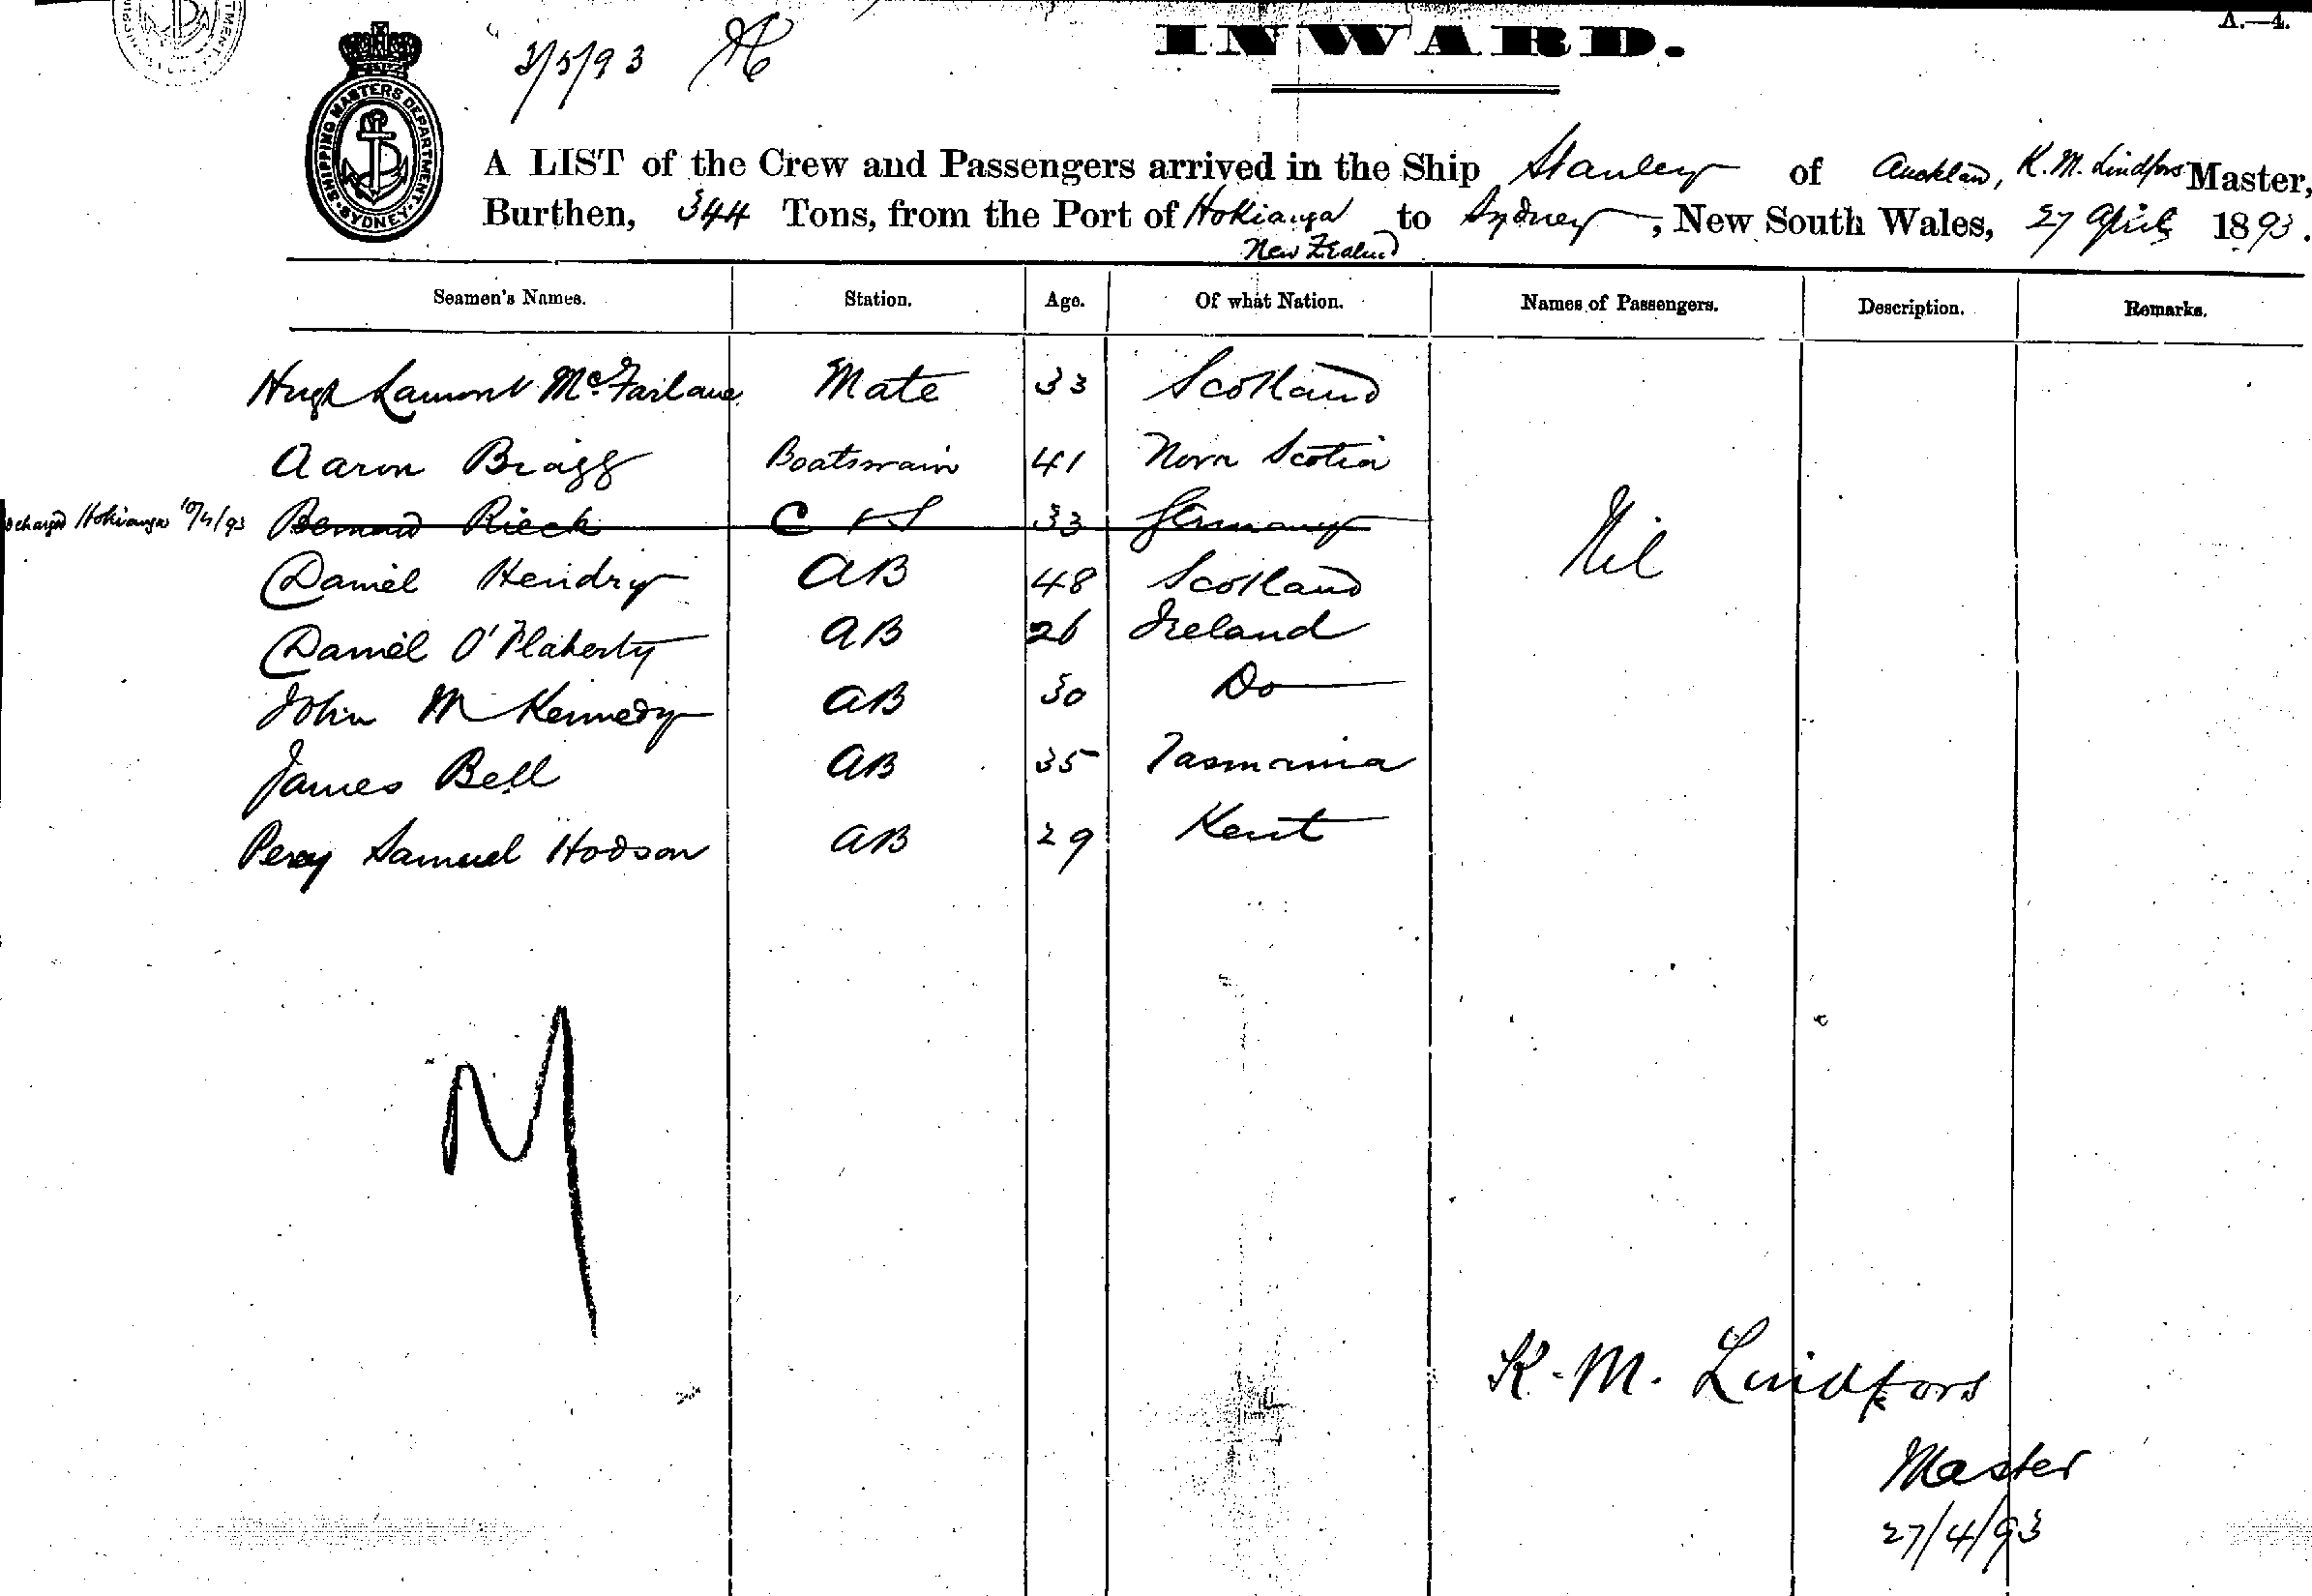 A.—4.
INWARD.
3/5/93
SHIPPING MASTERS DEPARTMENT · SYDNEY ·
A LIST of the Crew and Passengers arrived in the Ship Stanley of Auckland, K. M. Lindfors Master,
Burthen, 344 Tons, from the Port of Hokianga to Sydney, New South Wales, 27 April 1893.
New Zealand
Seamen's Names. Station. Age. Of what Nation. Names of Passengers. Description. Remarks.
Hugh Lamont McFarlane Mate 33 Scotland
Aaron Bragg Boatswain 41 Nova Scotia
Hokianga 10/4/93 Bernard Rieck C & S 33 Germany
Nil
Daniel Hendry AB 48 Scotland
Daniel O'Flaherty AB 26 Ireland
John M Kennedy AB 30 Do
James Bell AB 35 Tasmania
Percy Samuel Hodson AB 29 Kent
K. M. Lindfors
Master
27/4/93